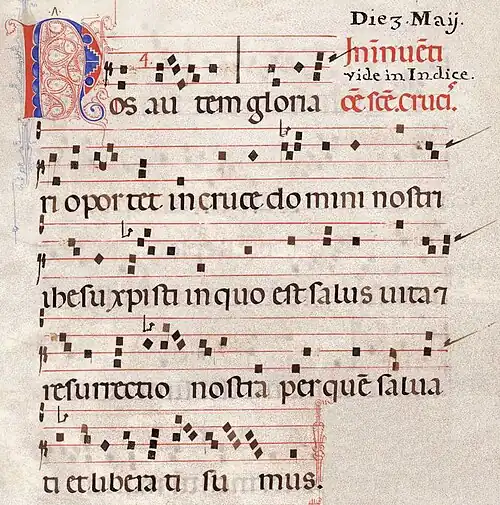 .A.
Die 3. Maij.
4.
In inuēti
vide in Indice.
Nos au tem gloria
ōe sctē. cruci⁹.
ri oportet in cruce domini nostri
ihesu xpisti in quo est salus uita ⁊
resurrectio nostra per quē salua
ti et libera ti su mus.